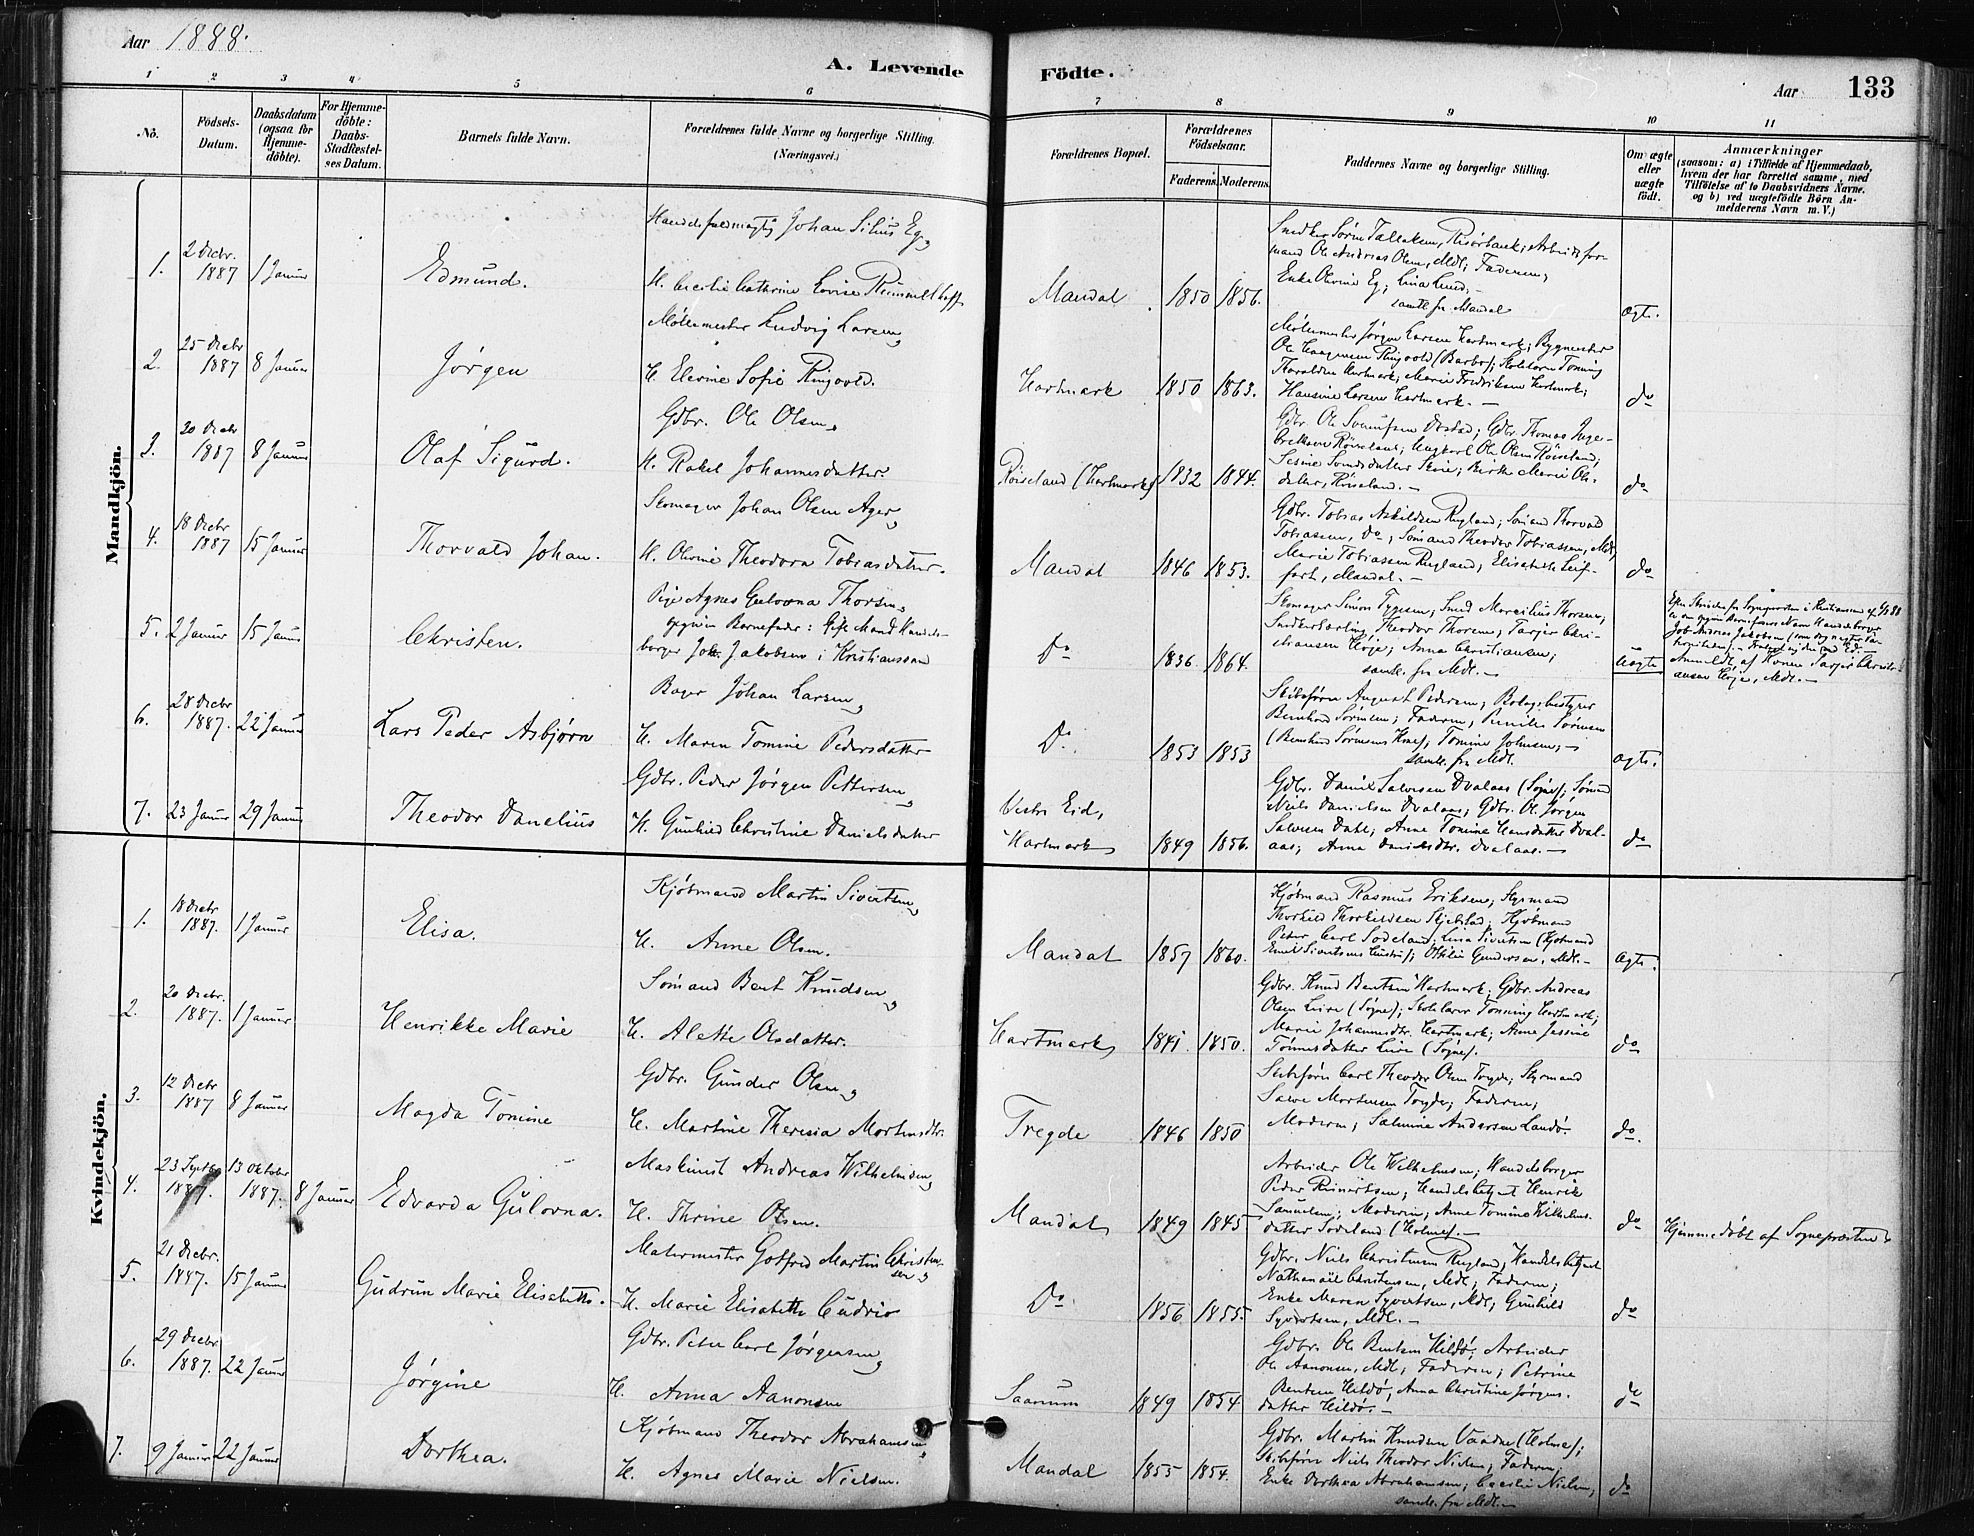 Aar 1888.
A. Levende Födte.
Aar 133
1 2 3 4 5 6 7 8 9 10 11
No.
Födsels-Datum.
Daabsdatum (ogsaa for Hjemme-döbte).
For Hjemme-döbte: Daabs-Stadfæstel-ses Datum.
Barnets fulde Navn.
Forældrenes fulde Navne og borgerlige Stilling.
(Næringsvei.)
Forældrenes Bopæl.
Forældrenes Födselsaar.
Faderens. Moderens.
Faddernes Navne og borgerlige Stilling.
Om ægte eller uægte födt.
Anmærkninger
(saasom: a) i Tilfælde af Hjemmedaab,
hvem der har forrettet samme, med
Tilföielse af to Daabsvidners Navne,
og b) ved uægtefödte Börn An-
melderens Navn m. V.)
Mandkjön.
1. 2 Decbr. 1887 1 Januar Edmund.
Johan Silius Eg,
H. Cecilie Cathrine Lovise
Mandal 1850 1856.
Ole Andreas Olsen, Mdl; Faderen;
Enke Olivine Eg; Lina Lund; –
samtl. fr Mandal
ægte.
2. 25 Decbr 1887 8 Januar Jørgen
Møllemester Ludvig Larsen,
H. Elevine Sofie Ringvold.
Hartmark 1850 1863.
Møllemester Jørgen Larsen Hartmark; Bygmester
Ole Ringvold (Barbo);
Haraldsen Hartmark; Marie Fredriksen Hartmark;
Hansine Larsen Hartmark. –
do
3. 20 Decbr 1887 8 Januar Olaf Sigurd.
Gdbr. Ole Olsen,
H. Rakel Johannesdatter.
Røiseland (Hartmark) 1832 1844.
Gdbr. Ole; Gdbr. Thomas Inge-
Røiseland; Ungkarl Ole Olsen Røiseland;
Marie Ols-
datter, Røiseland. –
do
4. 18 Decbr 1887 15 Januar Thorvald Johan.
Skomager Johan Olsen Ager,
H. Olivine Theodora Tobiasdatter.
Mandal 1846 1853.
Gdbr. Tobias Askildsen Rugland; Sømand Thorvald
Tobiassen, do, Sømand Theodor Tobiassen, Mdl;
Marie Tobiassen Rugland, Elisabeth
Mandal. –
do
5. 2 Januar 15 Januar Christen.
Pige Agnes Gulovna Thorsen,
opgiven Barnefader: Gift Mand Handels-
borger Job. Jakobsen i Kristianssand
Do 1836 1864.
Skomager Simon Tygesen, Smed Marcilius Thorsen,
Theodor Thorsen; Tarjer Chri-
stiansen; Anna Christiansen;
samtl. fra Mdl. –
Uægte
Job Andreas Jakobsen
Anmeldt af Konen Tarjer Christi-
ansen, Mdl. –
6. 28 Decbr 1887. 22 Januar Lars Peder Asbjørn
Bager Johan Larsen,
H. Maren Tomine Pedersdatter
Do. 1853 1853
Skibsfører August Pedersen;
Bernhard Sørensen; Faderen; Pernille Sørensen
(Bernhard Sørensens Kone); Tomine Johnsen; –
samtl. fra Mdl.
ægte.
7. 23 Januar 29 Januar Theodor Danelius
Gdbr. Peder Jørgen Pettersen,
H. Gunhild Christine Danielsdatter
Vestre Eid,
Hartmark 1849 1856.
Gdbr. Daniel Salvesen Dvalaas (Søgne); Sømand
Niels Danielsen Dvalaas; Gdbr. Ol. Jørgen
Salvesen Dahl; Anne Tomine Hansdatter Dval-
aas; Anna Danielsdtr. Dvalaas. –
do
Kvindekjön.
1. 18 Decbr 1887. 1 Januar Elisa.
Kjøbmand Martin Sivertsen,
H. Anne Olsen.
Mandal 1857 1860.
Kjøbmand Rasmus Eriksen; Styrmand
Thorkild Thorkildsen Skjelstad; Kjøbmand
Peter Carl Sodeland; Lina Sivertsen (Kjøbmand
Emil Sivertsens Hustru); Othilie Gundersen, Mdl. –
ægte.
2. 20 Decbr. 1887. 1 Januar Henrikke Marie
Sømand Bent Knudsen,
H. Alette Olsdatter.
Hartmark 1841. 1850.
Gdbr. Knud Bentsen Hartmark; Gdbr. Andreas
Olsen Leire (Søgne); Hartmark;
Marie Johannesdtr. Hartmark; Anne Jessine
Tønnesdatter Leire (Søgne).
do
3. 12 Decbr 1887 8 Januar Magda Tomine
Gdbr. Gunder Olsen,
H. Martine Theresia Mortensdtr.
Tregde 1846 1850
Skibsfører Carl Theodor Olsen Tregde; Styrmand
Salve Mortensen Tregde; Faderen;
Moderen; Salmine Andersen Landø.
do.
4. 23 Septbr 1887. 13 Oktober 1887. 8 Januar Edvarda Gulovna.
Maskinist Andreas Wilhelmsen,
H. Thrine Olsen.
Mandal 1849 1845
Arbeider Ole Wilhelmsen; Handelsborger
Peder Reinertsen; Handelsbetjent Henrik
Samuelsen; Moderen; Anne Tomine Wilhelms-
datter Sodeland (Holme). –
do
Hjemmedøbt af Sognepræsten
5. 21 Decbr. 1887. 15 Januar Gudrun Marie Elisabetha.
Malermester Gotfred Martin Christen-
sen,
H. Marie Elisabetha Cudrio
Do 1856 1855.
Gdbr. Niels Christensen Rugland; Handelsbetjent
Nathanäel Christensen, Mdl; Faderen;
Enke Maren Syvertsen, Mdl; Gunhild
Syvertsen, Mdl. –
do
6. 29 Decbr. 1887. 22 Januar Jørgine
Gdbr. Peter Carl Jørgensen,
H. Anna Aanonsen
Saanum 1849 1854.
Gdbr. Ole Bentsen Hildø; Arbeider
Ole Aanonsen, Mdl; Faderen; Petrine
Bentsen Hildø; Anna Christine Jørgens-
datter Hildø. –
do
7. 9 Januar 22 Januar Dorthea.
Kjøbmand Theodor Abrahamsen,
H. Agnes Marie Nielsen.
Mandal 1855 1854.
Gdbr. Martin Knudsen (Holme);
Skibsfører Niels Theodor Nielsen; Faderen;
Enke Dorthea Abrahamsen; Cecilie Nielsen;
samtl. fra Mdl. –
do